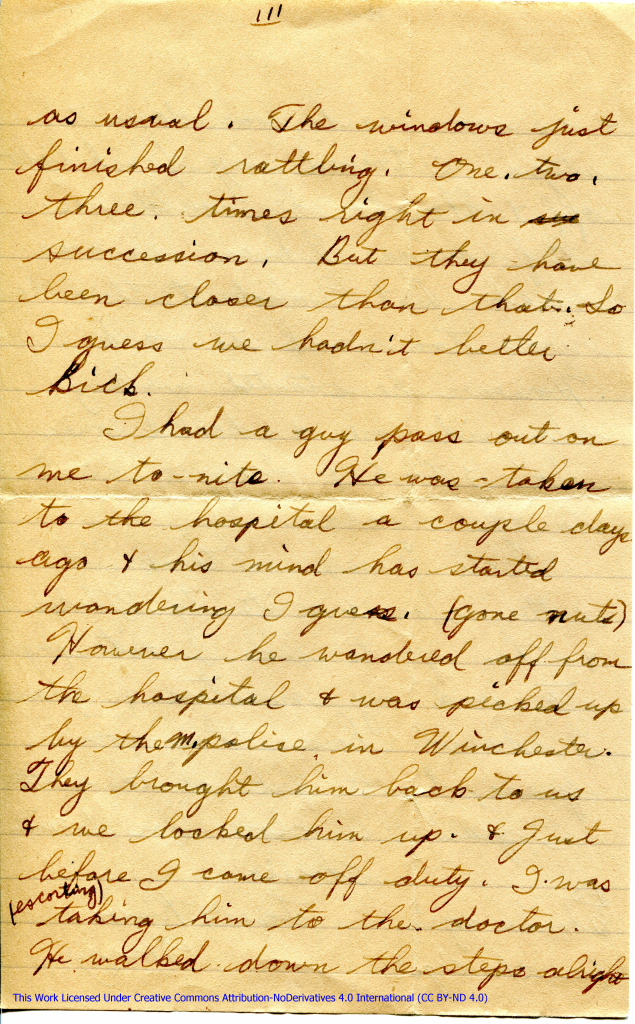 111
as usual. The windows just
finished rattling. One. two.
three. times right in
succession. But they have
been closer than that. So
I guess we hadn't better
kick.
I had a guy pass out on
me to-nite. He was taken
to the hospital a couple days
ago & his mind has started
wandering I guess. (gone nuts)
However he wandered off from
the hospital & was picked up
by the M. polise in Winchester.
They brought him back to us
& we locked him up. & Just
before I came off duty. I was
(escorting)
taking him to the doctor.
He walked down the steps alright
This Work Licensed Under Creative Commons Attribution-NoDerivatives 4.0 International (CC BY-ND 4.0)